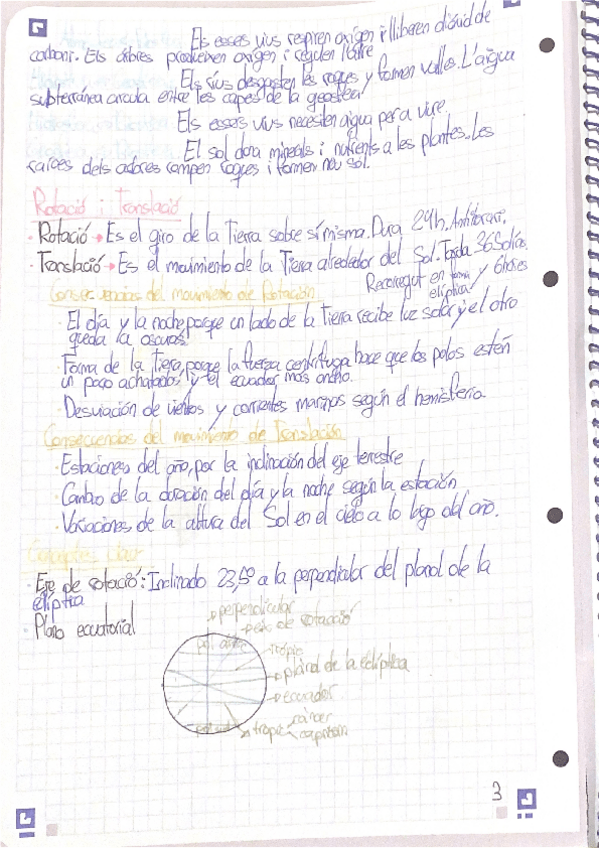 Els essers vius respiren oxígen i lliberen dioxid de
carboni. Els arbres produeixen oxigen i regulen l'aire
Els rius desgasten les roques y formen valles. L'aigua
subterránea circula entre les capes de la geosfera.
Els essers vius necesiten aigua per a viure.
El sol dona minerals i nutrients a les plantes. Les
raices dels arbres rompen roques i formen nou sol.
Rotació i Translació
· Rotació → Es el giro de la Tierra sobre sí misma. Dura 24h. Antihorari.
· Translació → Es el movimiento de la Tierra alrededor del Sol. Tarda 365 días
y 6 hores
Recorregut en forma
elíptica
Consecuencias del movimiento de Rotación
· El día y la noche porque un lado de la Tierra recibe luz solar y el otro
queda a oscuras.
· Forma de la Tierra, porque la fuerza centrífuga hace que los polos estén
un poco achatados y el ecuador más ancho.
· Desviación de vientos y corrientes marinos según el hemisferio.
Consecuencias del movimiento de Translación
· Estaciones del año, por la inclinación del eje terrestre
· Cambio de la duración del día y la noche según la estación
· Variaciones de la altura del Sol en el cielo a lo largo del año.
Conceptes clau
· Eje de rotació: Inclinado 23,5º a la perpendicular del planol de la
elíptica
· Plano ecuatorial
perpendicular
eix de rotació
tròpic
plànol de la eclíptica
ecuador
tropic
càncer
capricorn
3